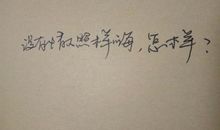 没有你我照样嗨，怎样？